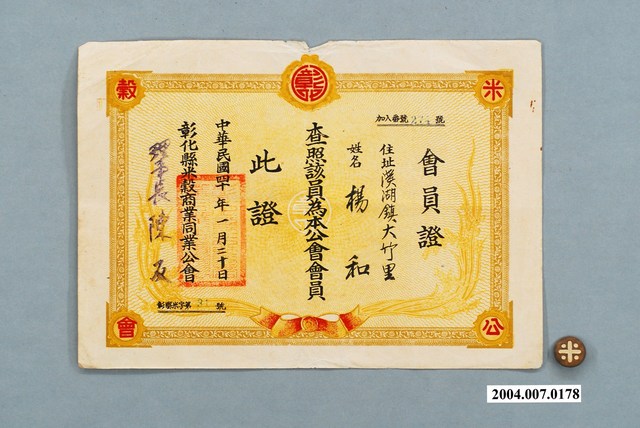 米
穀
公
會
彰
加入番號 274 號
會員證
住址溪湖鎮大竹里
姓名 楊和
查照該員為本公會會員
此證
中華民國四十年一月二十日
彰化縣米穀商業同業公會
理事長陳
號
2004.007.0178